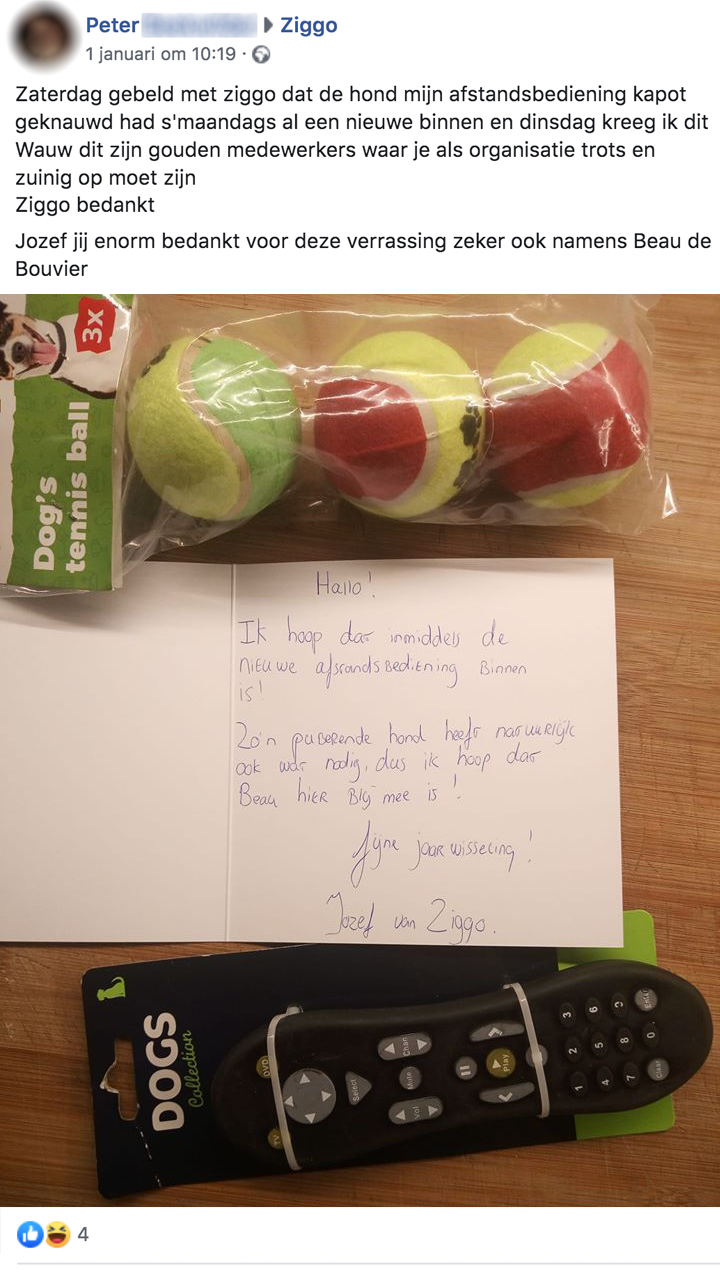 Peter
Ziggo
1 januari om 10:19 ·
Zaterdag gebeld met ziggo dat de hond mijn afstandsbediening kapot
geknauwd had s'maandags al een nieuwe binnen en dinsdag kreeg ik dit
Wauw dit zijn gouden medewerkers waar je als organisatie trots en
zuinig op moet zijn
Ziggo bedankt
Jozef jij enorm bedankt voor deze verrassing zeker ook namens Beau de
Bouvier
3x
Dog's
tennis ball
Hallo!
Ik hoop dat inmiddels de
nieuwe afstandsbediening binnen
is!
Zo'n puberende hond heeft natuurlijk
ook wat nodig, dus ik hoop dat
Beau hier blij mee is!
Fijne jaarwisseling!
Jozef van Ziggo.
DOGS
Collection
DVD
TV
Select
Chan
Mute
Vol
Play
3 6 9 Enter
2 5 8 0
1 4 7 Clear
4